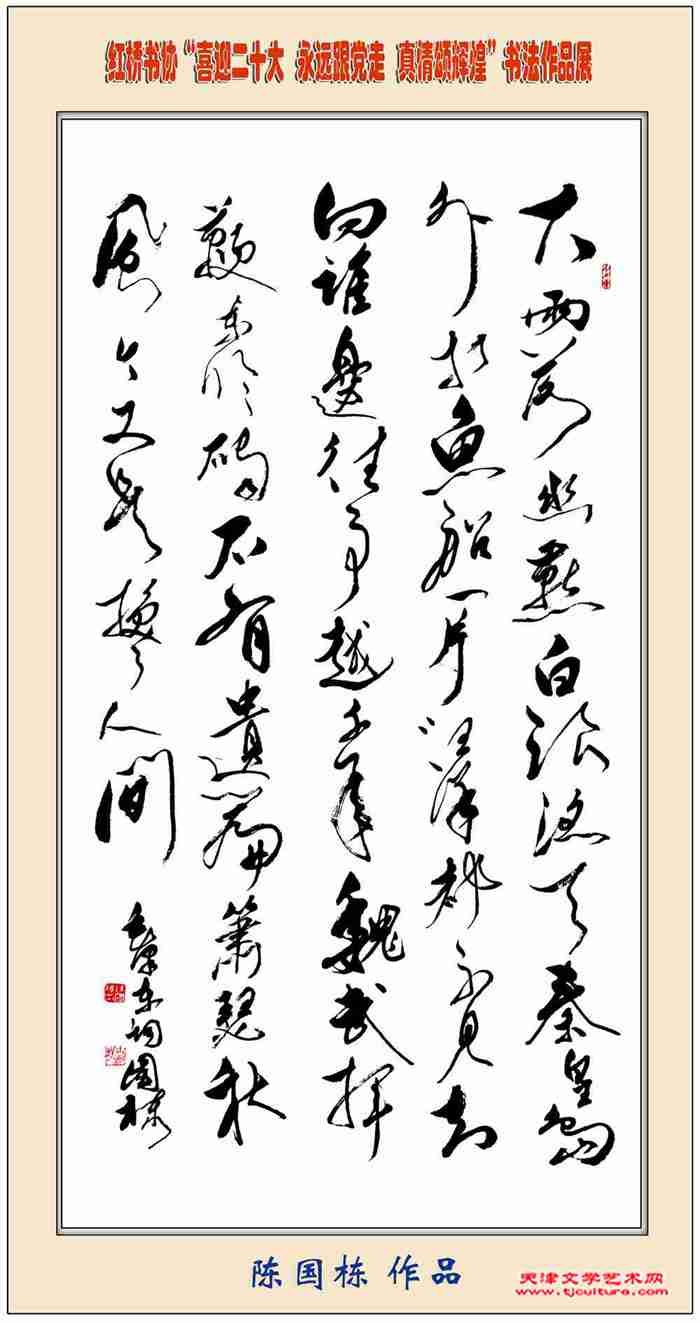 红桥书协“喜迎二十大 永远跟党走 真情颂辉煌”书法作品展
大雨落幽燕白浪滔天秦皇島
外打魚船一片汪洋都不見知
向誰邊往事越千年魏武揮
鞭東臨碣石有遺篇蕭瑟秋
風今又是換了人間
毛澤東詞國棟
陈国栋 作品
天津文学艺术网
www.tjculture.com